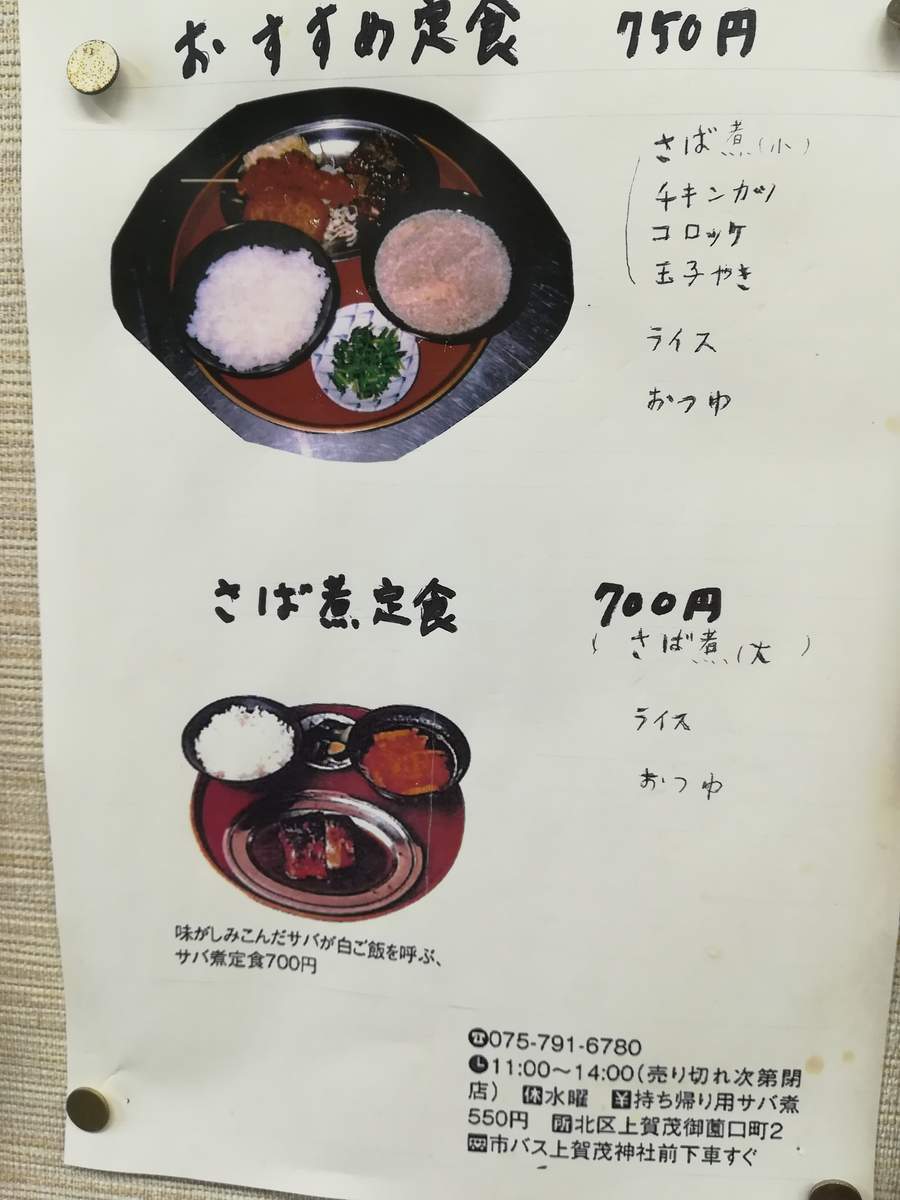 おすすめ定食 750円
さば煮(小)
チキンカツ
コロッケ
玉子やき
ライス
おつゆ
さば煮定食 700円
(さば煮(大)
ライス
おつゆ
味がしみこんだサバが白ご飯を呼ぶ、
サバ煮定食700円
☎075-791-6780
11:00〜14:00(売り切れ次第閉
店) 休水曜 ¥持ち帰り用サバ煮
550円 所北区上賀茂御薗口町2
市バス上賀茂神社前下車すぐ